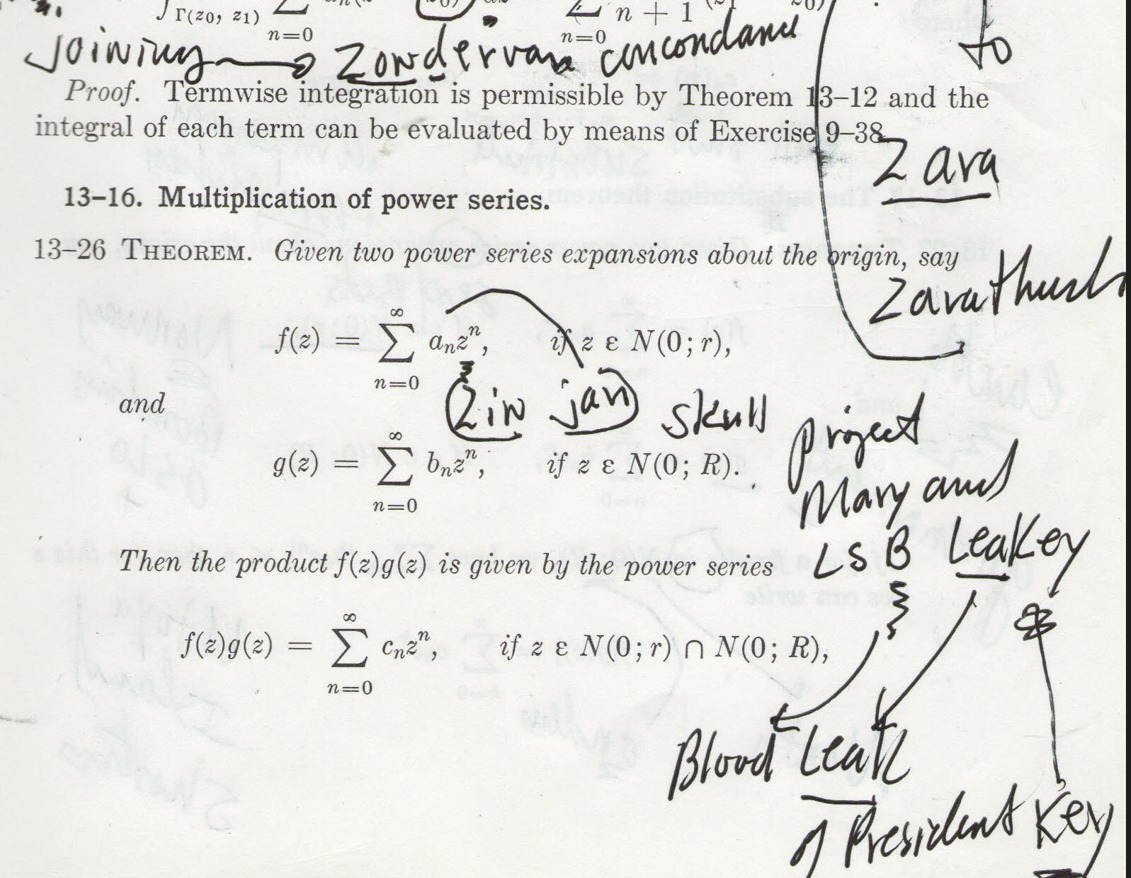 Γ(z0, z1)
n=0
n + 1
n=0
joining → Zondervan concondance
to
Proof. Termwise integration is permissible by Theorem 13–12 and the
integral of each term can be evaluated by means of Exercise 9–38.
Zara
13–16. Multiplication of power series.
13–26 THEOREM. Given two power series expansions about the origin, say
Zarathush
f(z) = ∑ aₙzⁿ, if z ε N(0; r),
n=0
and
Zin jan skull
g(z) = ∑ bₙzⁿ, if z ε N(0; R).
n=0
project
Mary and
LSB Leakey
Then the product f(z)g(z) is given by the power series
f(z)g(z) = ∑ cₙzⁿ, if z ε N(0; r) ∩ N(0; R),
n=0
Blood Leak
of President Key